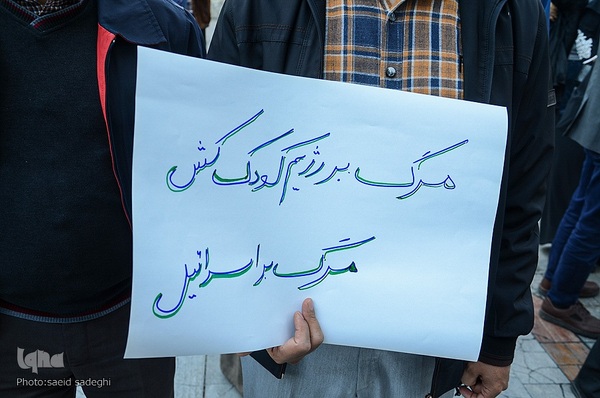 مرگ بر رژیم کودک کش
مرگ بر اسرائیل
iqna
Photo:saeid sadeghi